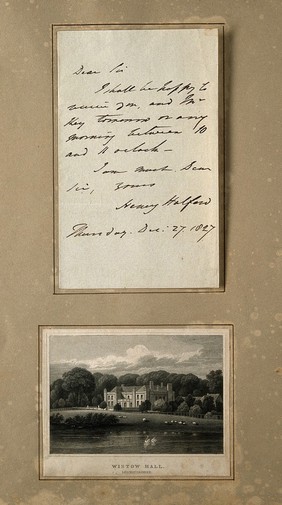 Dear Sir
I shall be happy to
receive you, and Mr
Key tomorrow or any
morning between 10
and 11 o'clock -
I am most Dear
Sir, yours
Henry Halford
Thursday. Dec: 27. 1827
WISTOW HALL.
LEICESTERSHIRE.